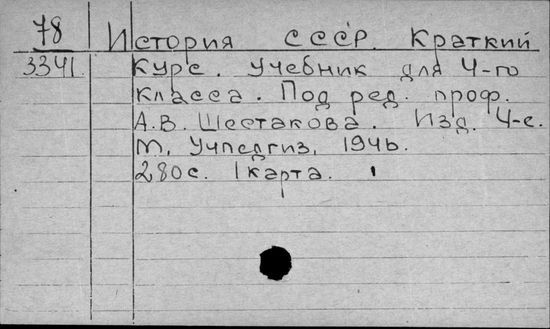 78
История СССР. Краткий
3341. Курс. Учебник для 4-го
класса. Под ред. проф.
А.В. Шестакова. Изд. 4-е.
М, Учпедгиз, 1946.
280с. 1 карта.